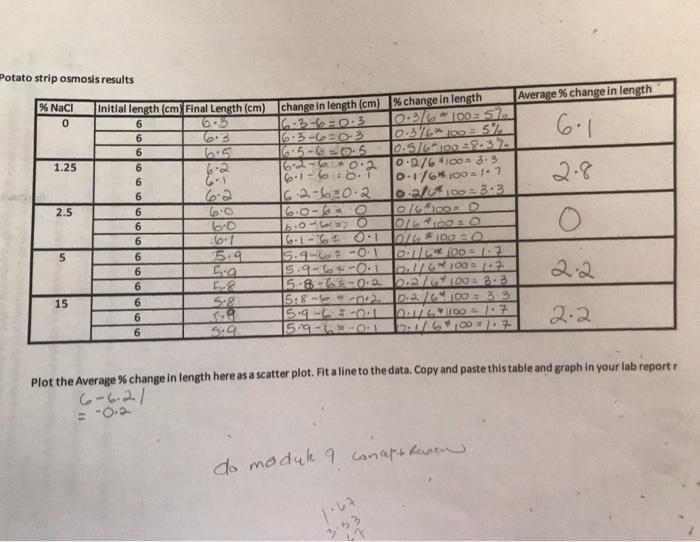 Potato strip osmosis results
% NaCl Initial length (cm) Final Length (cm) change in length (cm) % change in length Average % change in length
0 6 6.3 6.3-6=0.3 0.3/6*100=5% 6.1
6 6.3 6.3-6=0.3 0.3/6*100=5%
6 6.5 6.5-6=0.5 0.5/6*100=8.3%
1.25 6 6.2 6.2-6=0.2 0.2/6*100=3.3 2.8
6 6.1 6.1-6=0.1 0.1/6*100=1.7
6 6.2 6.2-6=0.2 0.2/6*100=3.3
2.5 6 6.0 6.0-6=0 0/6*100=0 0
6 6.0 6.0-6=0 0/6*100=0
6 6.1 6.1-6=0.1 0/6*100=0
5 6 5.9 5.9-6=-0.1 0.1/6*100=1.7 2.2
6 5.9 5.9-6=-0.1 0.1/6*100=1.7
6 5.8 5.8-6=-0.2 0.2/6*100=3.3
15 6 5.8 5.8-6=-0.2 0.2/6*100=3.3 2.2
6 5.9 5.9-6=-0.1 0.1/6*100=1.7
6 5.9 5.9-6=-0.1 0.1/6*100=1.7
Plot the Average % change in length here as a scatter plot. Fit a line to the data. Copy and paste this table and graph in your lab report r
6-6.2/
=-0.2
do module 9
1.67
3.33